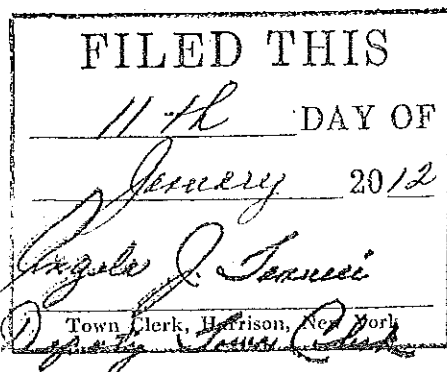 FILED THIS
11th DAY OF
January 2012
Angela J.
Town Clerk, Harrison, New York
Deputy Town Clerk